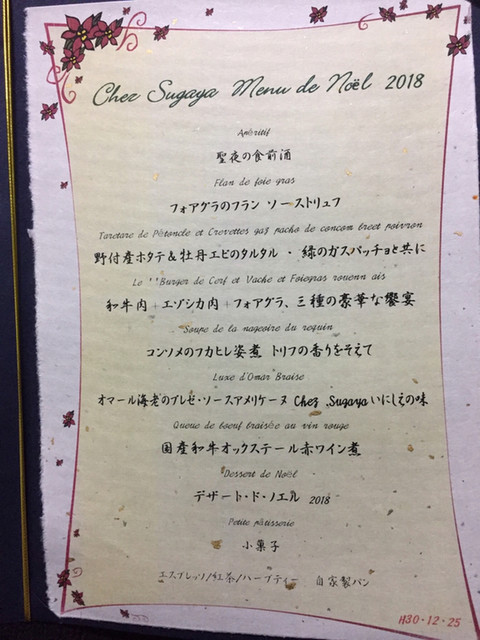 Chez Sugaya Menu de Noël 2018
Apéritif
聖夜の食前酒
Flan de foie gras
フォアグラのフラン ソーストリュフ
Taretare de Pétoncle et Crevettes gaz pacho de concom breet poivron
野付産ホタテ&牡丹エビのタルタル ・ 緑のガスパッチョと共に
Le "Burger de Cerf et Vache et Foiegras rouenn ais
和牛肉+エゾシカ肉+フォアグラ、三種の豪華な饗宴
Soupe de la nageoire du requin
コンソメのフカヒレ姿煮 トリフの香りをそえて
Luxe d'Omar Braise
オマール海老のブレゼ・ソースアメリケーヌ Chez Sugaya いにしえの味
Queue de boeuf braisée au vin rouge
国産和牛オックステール赤ワイン煮
Dessert de Noël
デザート・ド・ノエル 2018
Petite pâtisserie
小菓子
エスプレッソ/紅茶/ハーブティー 自家製パン
H30・12・25